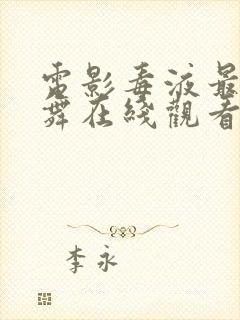 電影毒液最
舞在綫觀看
李永